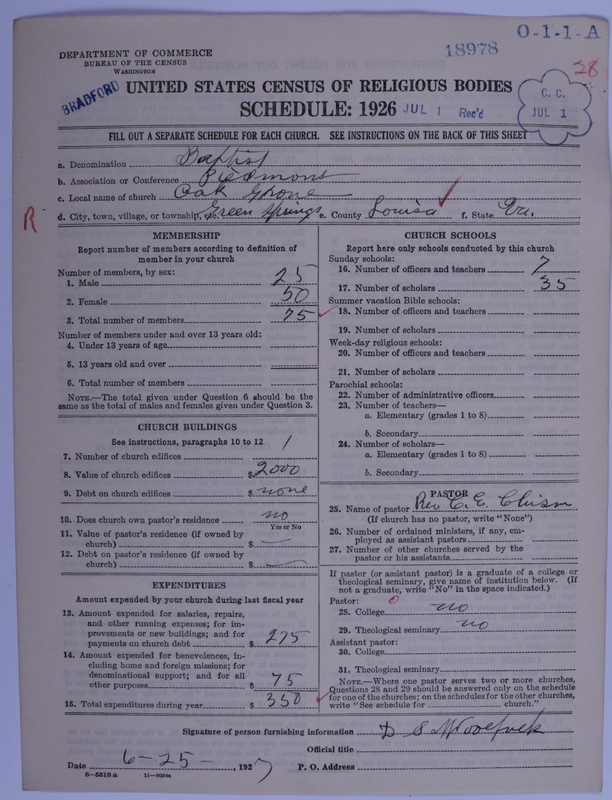 O-1-1-A
18978
28
DEPARTMENT OF COMMERCE
BUREAU OF THE CENSUS
WASHINGTON
BRADFORD
UNITED STATES CENSUS OF RELIGIOUS BODIES
SCHEDULE: 1926
JUL 1 Rec'd
C. C.
JUL 1
FILL OUT A SEPARATE SCHEDULE FOR EACH CHURCH. SEE INSTRUCTIONS ON THE BACK OF THIS SHEET
a. Denomination Baptist
b. Association or Conference Piedmont
c. Local name of church Oak Grove
d. City, town, village, or township, Green Springs e. County Louisa f. State Va.
R
MEMBERSHIP
Report number of members according to definition of
member in your church
Number of members, by sex:
1. Male 25
2. Female 50
3. Total number of members 75
Number of members under and over 13 years old:
4. Under 13 years of age
5. 13 years old and over
6. Total number of members
NOTE.—The total given under Question 6 should be the
same as the total of males and females given under Question 3.
CHURCH BUILDINGS
See instructions, paragraphs 10 to 12
7. Number of church edifices 1
8. Value of church edifices $ 2000
9. Debt on church edifices $ none
10. Does church own pastor's residence no
Yes or No
11. Value of pastor's residence (if owned by
church) $ —
12. Debt on pastor's residence (if owned by
church) $ —
EXPENDITURES
Amount expended by your church during last fiscal year
13. Amount expended for salaries, repairs,
and other running expenses; for im-
provements or new buildings; and for
payments on church debt $ 275
14. Amount expended for benevolences, in-
cluding home and foreign missions; for
denominational support; and for all
other purposes $ 75
15. Total expenditures during year $ 350
CHURCH SCHOOLS
Report here only schools conducted by this church
Sunday schools:
16. Number of officers and teachers 7
17. Number of scholars 35
Summer vacation Bible schools:
18. Number of officers and teachers
19. Number of scholars
Week-day religious schools:
20. Number of officers and teachers
21. Number of scholars
Parochial schools:
22. Number of administrative officers
23. Number of teachers—
a. Elementary (grades 1 to 8)
b. Secondary
24. Number of scholars—
a. Elementary (grades 1 to 8)
b. Secondary
PASTOR
25. Name of pastor Rev C. E. Chism
(If church has no pastor, write "None")
26. Number of ordained ministers, if any, em-
ployed as assistant pastors
27. Number of other churches served by the
pastor or his assistants
If pastor (or assistant pastor) is a graduate of a college or
theological seminary, give name of institution below. (If
not a graduate, write "No" in the space indicated.)
Pastor: 0
28. College no
29. Theological seminary no
Assistant pastor:
30. College
31. Theological seminary
NOTE.—Where one pastor serves two or more churches,
Questions 28 and 29 should be answered only on the schedule
for one of the churches; on the schedules for the other churches,
write "See schedule for church."
Signature of person furnishing information D S
Official title
Date 6-25- 1927 P. O. Address